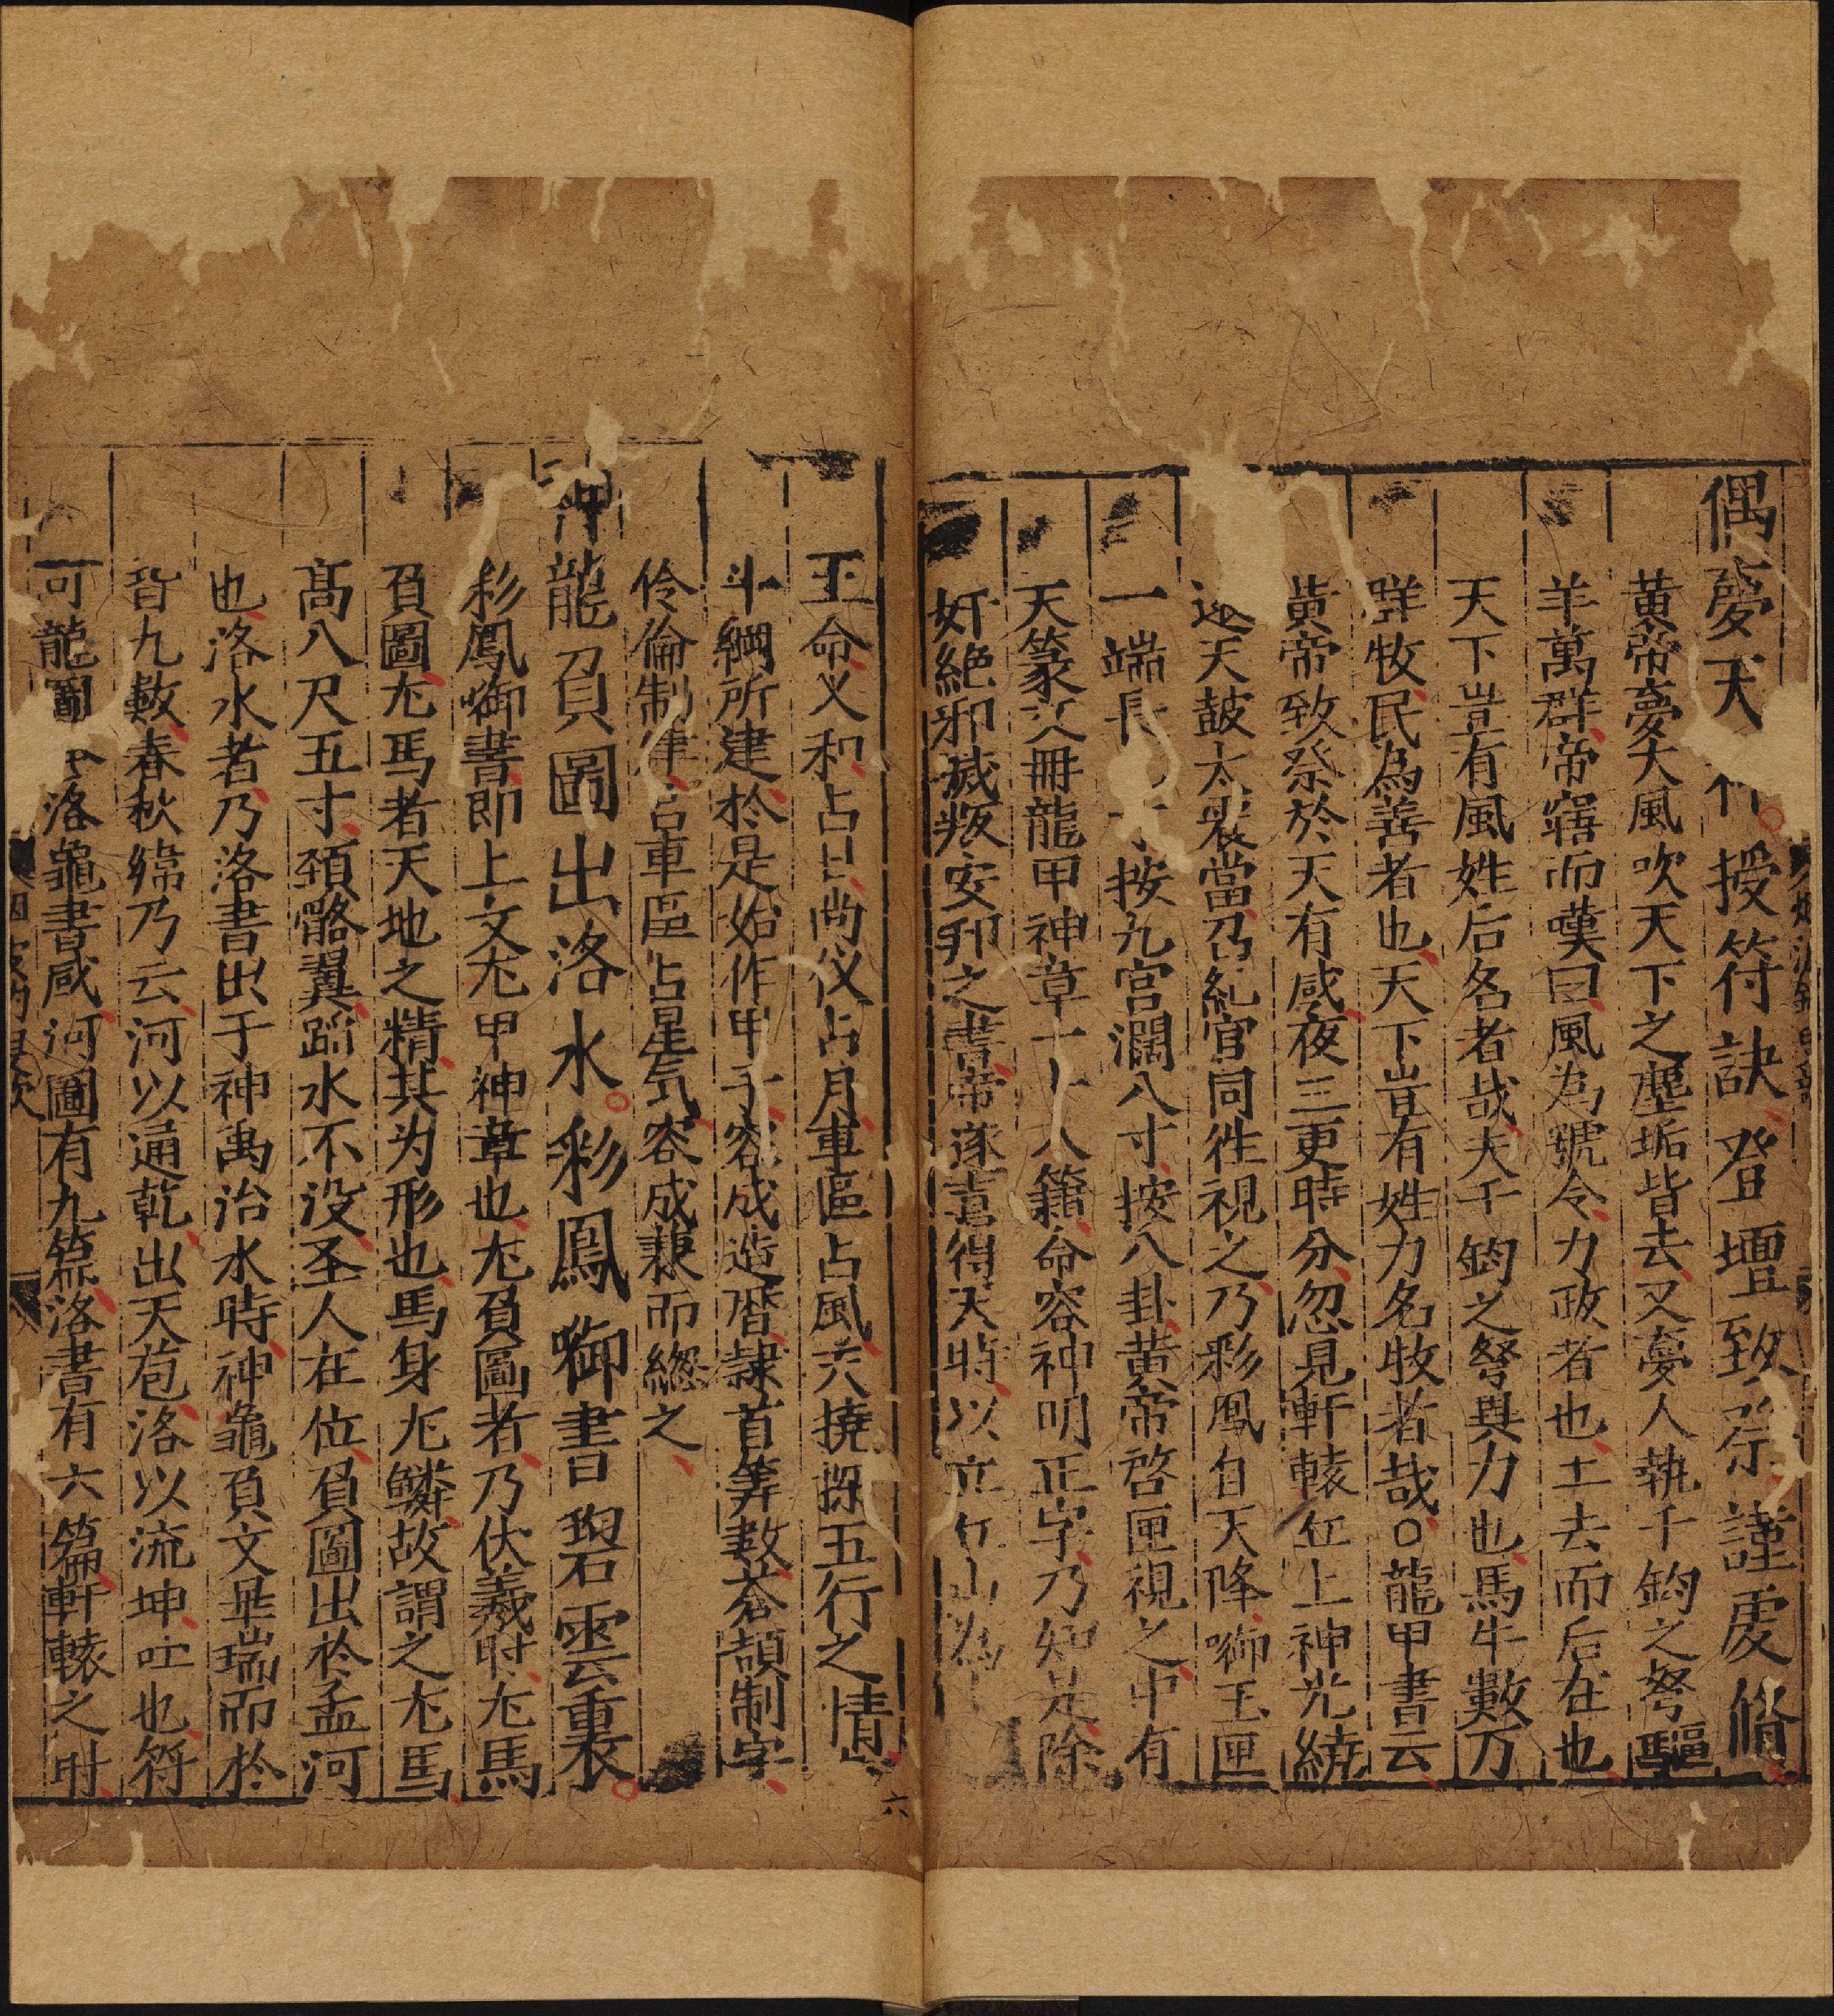 偶夢天 授符訣登壇致祭謹虔脩
黃帝夢大風吹天下之塵垢皆去又夢人執千鈞之弩驅
羊萬群帝寤而嘆曰風為號令力政者也土去而后在也
天下豈有風姓后名者哉夫千鈞之弩與力也馬牛數万
群牧民為善者也天下豈有姓力名牧者哉〇龍甲書云
黃帝致祭於天有感夜三更時分忽見軒轅丘上神光繞
天皷太 當乃紀官同徃視之乃彩鳳自天降啣玉匣
一端長 按九宮濶八寸按八卦黃帝啓匣視之中有
天篆文冊龍甲神章十 人籍命容神明正字乃知是除
奸絕邪滅叛安邦之書帝遂喜得天時以立
王命义和占日尚仪占月車區占風六撓探五行之情
斗綱所建於是始作甲子容成造曆隸首筭數蒼頡制字
伶倫制律 車區占星気容成兼而緫之
龍負圖出洛水彩鳳啣書碧雲裏
彩鳳啣書即上文尨甲神章也尨負圖者乃伏義时尨馬
負圖尨馬者天地之精其为形也馬身尨鱗故謂之尨馬
髙八尺五寸頚骼翼蹈水不沒圣人在位負圖出於孟河
也洛水者乃洛書出于神禹治水時神龜負文是瑞而於
背九數春秋緯乃云河以通乾出天苞洛以流坤吐也符
可龍圖 洛龜書感河圖有九篇洛書有六篇軒轅之时
六